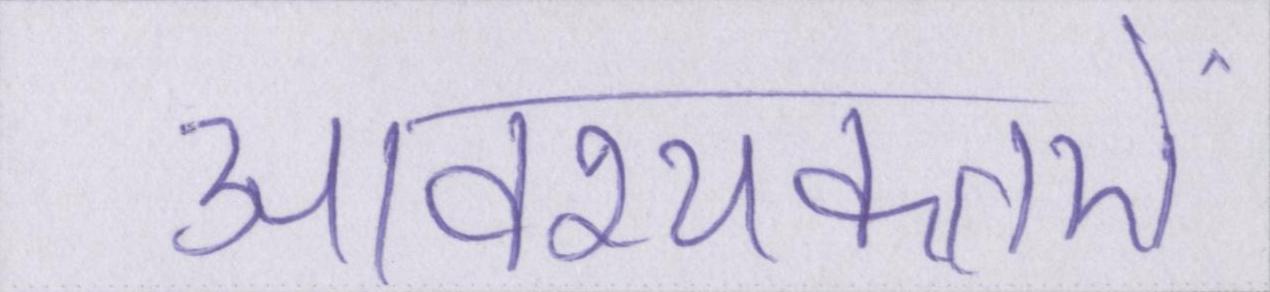 आवश्यकताऐं